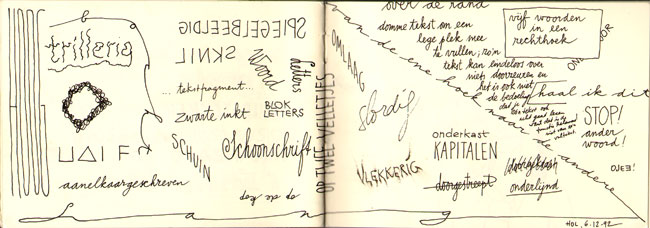 bibberig
SPIEGELBEELDIG
LINKS
woord
Letters
... tekstfragment ...
zwarte inkt
BLOK
LETTERS
SCHUIN
Schoonschrift
HALF
aanelkaargeschreven
op de kop
Lang
OP TWEE VELLETJES
OMLAAG
slordig
VLEKKERIG
over de rand
domme tekst om een
lege plek mee
te vullen; zo'n
tekst kan eindeloos over
niets doorzeuren en
het is ook niet
de bedoeling
dat je
vijf woorden
in een
rechthoek
van de ene hoek naar de andere
haal ik dit
STOP!
ander
woord!
OJEE!
onderkast
KAPITALEN
doorgestreept
onderlijnd
HOL, 6.12.92